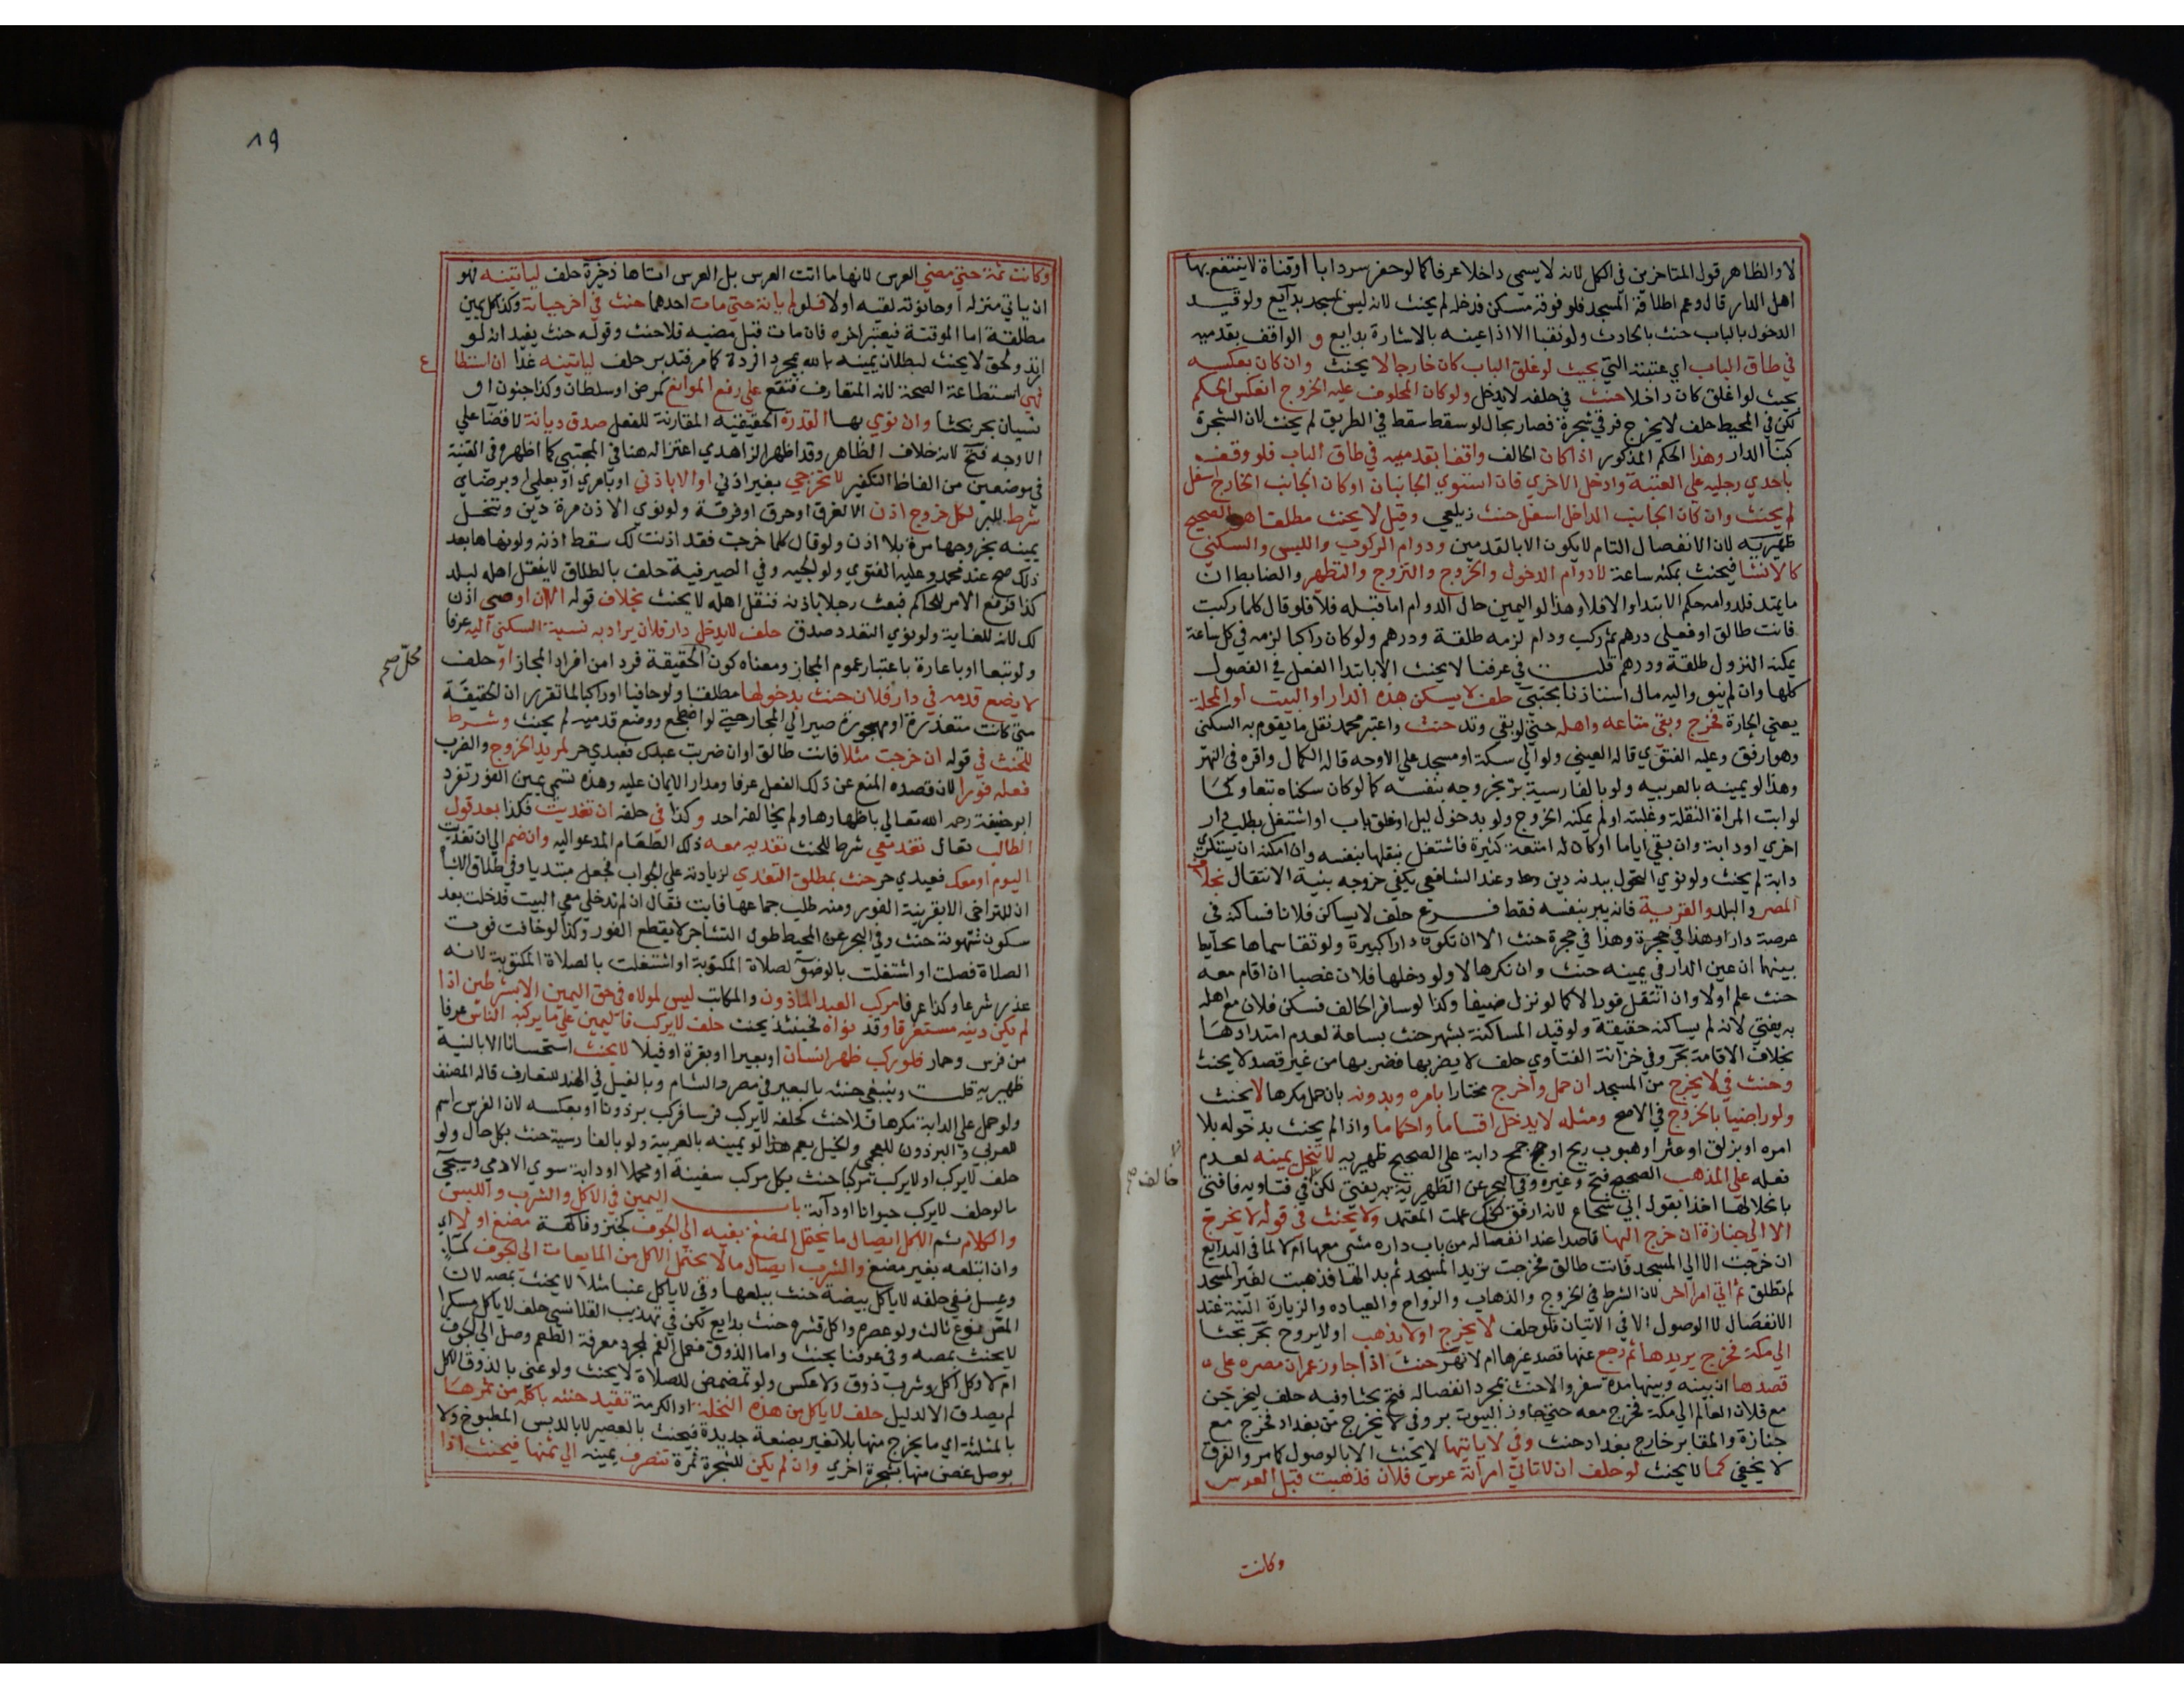 لا والظاهر قول المتاخرين في الكل لانه لا يسمى داخلا عرفا كما لو حفر سردابا او قناة لا ينتفع بها
اهل الدار قال وعم اطلاقه المسجد فلو فوقه مسكن فدخله لم يحنث لانه ليس بمسجد بدايع ولو قيد
الدخول بالباب حنث بالحادث ولو نقبا الا اذا عينه بالاشارة بدايع و الواقف بقدميه
في طاق الباب اي عتبته التي بحيث لو غلق الباب كان خارجا لا يحنث وان كان بعكسه
بحيث لو اغلق كان داخلا حنث في حلفه لا يدخل ولو كان المحلوف عليه الخروج انعكس الحكم
لكن في المحيط حلف لا يخرج فرقي شجرة فصار بحال لو سقط سقط في الطريق لم يحنث لان الشجرة
كبنآ الدار وهذا الحكم المذكور اذا كان الحالف واقفا بقدميه في طاق الباب فلو وقف
باحدي رجليه علي العتبة وادخل الاخري فان استوي الجانبان او كان الجانب الخارج اسفل
لم يحنث وان كان الجانب الداخل اسفل حنث زيلعي وقيل لا يحنث مطلقا هو الصحيح
ظهيرية لان الانفصال التام لا يكون الا بالقدمين ودوام الركوب واللبس والسكني
كالانشا فيحنث بمكثه ساعة لا دوام الدخول والخروج والتزوج والتطهر والضابط ان
ما يمتد فلدوامه حكم الابتدا والا فلا وهذا لو اليمين حال الدوام اما قبله فلا فلو قال كلما ركبت
فانت طالق او فعلي درهم ثم ركب ودام لزمه طلقة ودرهم ولو كان راكبا لزمه في كل ساعة
يمكنه النزول طلقة ودرهم قلت في عرفنا لا يحنث الا بابتدا الفعل في الفصول
كلها وان لم ينو واليه مال استاذنا مجتبي حلف لا يسكن هذه الدار او البيت او المحلة
يعني الحارة فخرج وبقي متاعه واهله حتي لو بقي وتد حنث واعتبر محمد نقل ما يقوم به السكني
وهو ارفق وعليه الفتوي قاله العيني ولو الي سكة او مسجد علي الاوجه قاله الكمال واقره في النهر
وهذا لو يمينه بالعربيه ولو بالفارسية بر بخروجه بنفسه كما لو كان سكناه تبعا وكما
لو ابت المراة النقلة وغلبته او لم يمكنه الخروج ولو بدخول ليل او غلق باب او اشتغل بطلب دار
اخري او دابة وان بقي اياما او كان له امتعة كثيرة فاشتغل بنقلها بنفسه وان امكنه ان يستكري
دابة لم يحنث ولو نوي التحول ببدنه دين وعند الشافعي يكفي خروجه بنية الانتقال بخلاف
المصر والبلد والقرية فانه يبر بنفسه فقط فرع حلف لا يساكن فلانا فساكنه في
عرصة دار او هذا في حجرة وهذا في حجرة حنث الا ان تكون دارا كبيرة ولو تقاسماها بحايط
بينهما ان عين الدار في يمينه حنث وان نكرها لا ولو دخلها فلان غصبا ان اقام معه
حنث علم اولا وان انتقل فورا لا كما لو نزل ضيفا وكذا لو سافر الحالف فسكن فلان مع اهله
به يفتي لانه لم يساكنه حقيقة ولو قيد المساكنة بشهر حنث بساعة لعدم امتدادها
بخلاف الاقامة بحر وفي خزانة الفتاوي حلف لا يضربها فضربها من غير قصد لا يحنث
وحنث في لا يخرج من المسجد ان حمل واخرج مختارا بامره وبدونه بان حمل مكرها لا يحنث
ولو راضيا بالخروج في الاصح ومثله لا يدخل اقساما واحكاما واذا لم يحنث بدخوله بلا
امره او بزلق او عثر او هبوب ريح او جمح دابة علي الصحيح ظهيريه لا تنحل يمينه لعدم
فعله علي المذهب الصحيح فتح وغيره وفي البحر عن الظهيرية به يفتي لكن في فتاويه فافتي
بانحلالها اخذا بقول ابي شجاع لانه ارفق لكنك علمت المعتمد ولا يحنث في قوله لا يخرج
الا الي جنازة ان خرج اليها قاصدا عند انفصاله من باب داره مشي معها ام لا لما في البدايع
ان خرجت الا الي المسجد فانت طالق فخرجت تريد المسجد ثم بدا لها فذهبت لغير المسجد
لم تطلق ثم اتي امرا اخر لان الشرط في الخروج والذهاب والرواح والعياده والزيارة النية عند
الانفصال لا الوصول الا في الاتيان فلو حلف لا يخرج او لا يذهب او لا يروح بحر بحثا
الي مكة فخرج يريدها ثم رجع عنها قصد غيرها ام لا نهر حنث اذا جاوز عمران مصره علي
قصدها ان بينه وبينها مدة سفر والا حنث بمجرد انفصاله فتح بحثا وفيه حلف ليخرجن
مع فلان العالم الي مكة فخرج معه حتي جاوز البيوت بر وفي لا يخرج من بغداد فخرج مع
جنازة والمقابر خارج بغداد حنث وفي لا ياتيها لا يحنث الا بالوصول كما مر والفرق
لا يخفي كما لا يحنث لو حلف ان لا تاتي امراته عرس فلان فذهبت قبل العرس
وكانت
١٩
وكانت ثمة حتي مضي العرس لانها ما اتت العرس بل العرس اتاها ذخيرة حلف لياتينه فهو
ان ياتي منزله او حانوته لقيه اولا فلو لم ياته حتي مات احدهما حنث في اخر حياته وكذا كل يمين
مطلقة اما الموقتة فيعتبر اخره فان مات قبل مضيه فلا حنث وقوله حنث يفيد انه لو
ارتد ولحق لا يحنث لبطلان يمينه بالله بمجرد الردة كما مر فتدبر حلف لياتينه غدا ان استطا
ع
فهي استطاعة الصحة لانه المتعارف فتقع علي رفع الموانع كمرض او سلطان وكذا جنون او
نسيان بحر بحثا وان نوي بها القدرة الحقيقية المقارنة للفعل صدق ديانة لا قضآ علي
الاوجه فتح لانه خلاف الظاهر وقد اظهر الزاهدي اعتزاله هنا في المجتبي كما اظهره في القنية
في موضعين من الفاظ التكفير لا تخرجي بغير اذني او الا باذني او بامري او بعلمي او برضاي
شرط للبر لكل خروج اذن الا لغرق او حرق او فرقة ولو نوي الاذن مرة دين وتنحل
يمينه بخروجها مرة بلا اذن ولو قال كلما خرجت فقد اذنت لك سقط اذنه ولو نهاها بعد
ذلك صح عند محمد وعليه الفتوي ولوالجيه وفي الصيرفية حلف بالطلاق لا ينقل اهله لبلد
كذا فرفع الامر للحاكم فبعث رجلا باذنه فنقل اهله لا يحنث بخلاف قوله الا ان او حتي اذن
لك لانه للغاية ولو نوي التعدد صدق حلف لا يدخل دار فلان يراد به نسبة السكني اليه عرفا
ولو تبعا او باعارة باعتبار عموم المجاز ومعناه كون الحقيقة فردا من افراد المجاز او حلف
محل صح
لا يضع قدمه في دار فلان حنث بدخولها مطلقا ولو حافيا او راكبا لما تقرر ان الحقيقة
متي كانت متعذرة او مهجورة صير الي المجاز حتي لو اضطجع ووضع قدميه لم يحنث وشرط
للحنث في قوله ان خرجت مثلا فانت طالق او ان ضربت عبدك فعبدي حر لمريد الخروج والضرب
فعله فورا لان قصده المنع عن ذلك الفعل عرفا ومدار الايمان عليه وهذه تسمي يمين الفور تفرد
ابو حنيفة رحمه الله تعالي باظهارها ولم يخالفه احد وكذا في حلفه ان تغديت فكذا بعد قول
الطالب تعال تغد معي شرط للحنث تغديه معه ذلك الطعام المدعو اليه وان ضم الي ان تغديت
اليوم او معك فعبدي حر حنث بمطلق التغدي لزيادته علي الجواب فجعل مبتديا وفي طلاق الاشبا
ان للتراخي الا بقرينة الفور ومنه طلب جماعها فابت فقال ان لم تدخلي معي البيت فدخلت بعد
سكون شهوته حنث وفي البحر عن المحيط طول التشاجر لا يقطع الفور وكذا لو خافت فوت
الصلاة فصلت او اشتغلت بالوضوء لصلاة المكتوبة او اشتغلت بالصلاة المكتوبة لانه
عذر شرعا وكذا عرفا مركب العبد الماذون والمكاتب ليس لمولاه في حق اليمين الا بشرطين اذا
لم يكن دينه مستغرقا وقد نواه فحينئذ يحنث حلف لا يركب فاليمين علي ما يركبه الناس عرفا
من فرس وحمار فلو ركب ظهر انسان او بعيرا او بقرة او فيلا لا يحنث استحسانا الا بالنية
ظهيريه قلت وينبغي حنثه بالبعير في مصر والشام وبالفيل في الهند للتعارف قاله المصنف
ولو حمل علي الدابة مكرها فلا حنث كحلفه لا يركب فرسا فركب برذونا او بعكسه لان الفرس اسم
للعربي والبرذون للعجمي والخيل يعم هذا لو يمينه بالعربية ولو بالفارسية حنث بكل حال ولو
حلف لا يركب او لا يركب مركبا حنث بكل مركب سفينة او محملا او دابة سوي الادمي وسيجي
ما لو حلف لا يركب حيوانا او دابة باب اليمين في الاكل والشرب واللبس
والكلام ثم الاكل ايصال ما يحتمل المضغ بفيه الي الجوف كخبز وفاكهة مضغ او لا اي
وان ابتلعه بغير مضغ والشرب ايصال ما لا يحتمل الاكل من المايعات الي الجوف كمآ
وعسل ففي حلفه لا ياكل بيضة حنث ببلعها وفي لا ياكل عنبا مثلا لا يحنث بمصه لان
المص نوع ثالث ولو عصره واكل قشره حنث بدايع لكن في تهذيب القلانسي حلف لا ياكل سكرا
لا يحنث بمصه وفي عرفنا يحنث واما الذوق فعمل الفم لمجرد معرفة الطعم وصل الي الجوف
ام لا وكل اكل وشرب ذوق ولا عكس ولو تمضمض للصلاة لا يحنث ولو عني بالذوق الاكل
لم يصدق الا لدليل حلف لا ياكل من هذه النخلة او الكرمة تقيد حنثه باكله من ثمرها
بالمثلثة اي ما يخرج منها بلا تغير بصنعة جديدة فيحنث بالعصير لا بالدبس المطبوخ ولا
بوصل غصن منها بشجرة اخري وان لم يكن للشجرة ثمرة تنصرف يمينه الي ثمنها فيحنث اذا